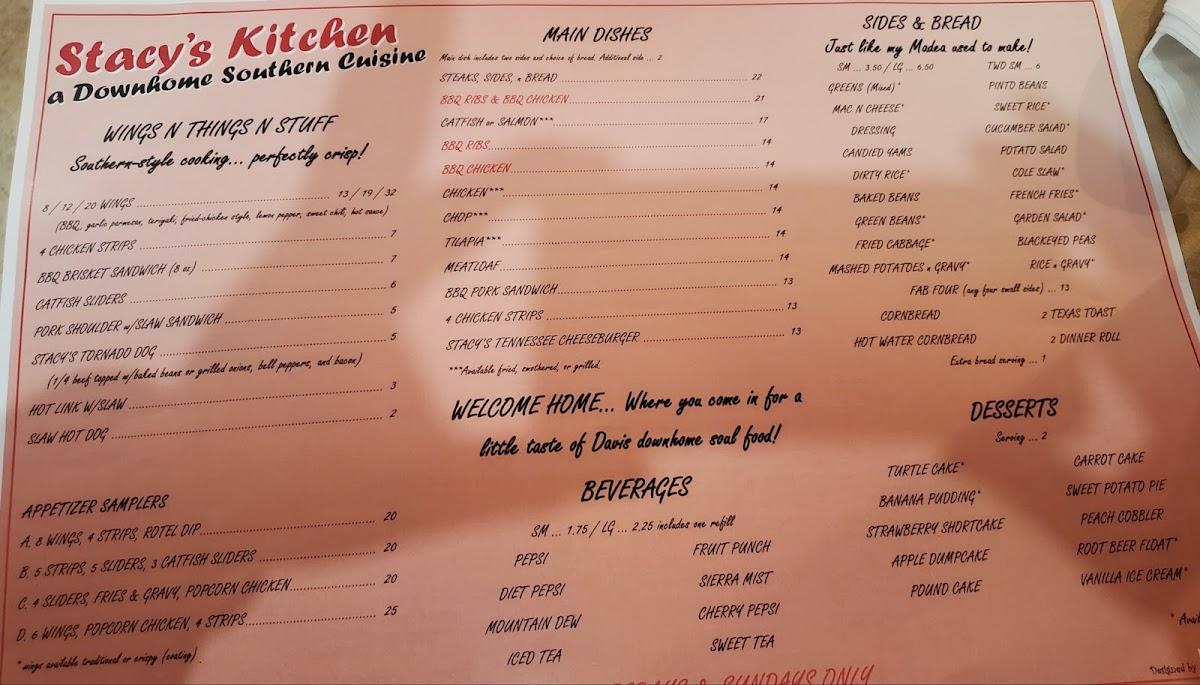 Stacy's Kitchen
a Downhome Southern Cuisine
WINGS N THINGS N STUFF
Southern-style cooking... perfectly crisp!
8 / 12 / 20 WINGS 13 / 19 / 32
(BBQ, garlic parmesan, teriyaki, fried-chicken style, lemon pepper, sweet chili, hot sauce)
4 CHICKEN STRIPS 7
BBQ BRISKET SANDWICH (8 oz) 7
CATFISH SLIDERS 6
PORK SHOULDER w/SLAW SANDWICH 5
STACY'S TORNADO DOG 5
(1/4 beef topped w/baked beans or grilled onions, bell peppers, and bacon)
HOT LINK W/SLAW 3
SLAW HOT DOG 2
APPETIZER SAMPLERS
A. 8 WINGS, 4 STRIPS, ROTEL DIP 20
B. 5 STRIPS, 5 SLIDERS, 3 CATFISH SLIDERS 20
C. 4 SLIDERS, FRIES & GRAVY, POPCORN CHICKEN 20
D. 6 WINGS, POPCORN CHICKEN, 4 STRIPS 25
*wings available traditional or crispy (coating)
MAIN DISHES
Main dish includes two sides and choice of bread. Additional side ... 2
STEAKS, SIDES, & BREAD 22
BBQ RIBS & BBQ CHICKEN 21
CATFISH or SALMON*** 17
BBQ RIBS 14
BBQ CHICKEN 14
CHICKEN*** 14
CHOP*** 14
TILAPIA*** 14
MEATLOAF 14
BBQ PORK SANDWICH 13
4 CHICKEN STRIPS 13
STACY'S TENNESSEE CHEESEBURGER 13
***Available fried, smothered, or grilled.
WELCOME HOME... Where you come in for a
little taste of Davis downhome soul food!
BEVERAGES
SM ... 1.75 / LG ... 2.25 includes one refill
PEPSI FRUIT PUNCH
DIET PEPSI SIERRA MIST
MOUNTAIN DEW CHERRY PEPSI
ICED TEA SWEET TEA
& SUNDAYS ONLY
SIDES & BREAD
Just like my Madea used to make!
SM ... 3.50 / LG ... 6.50 TWO SM ... 6
GREENS (Mixed)* PINTO BEANS
MAC N CHEESE* SWEET RICE*
DRESSING CUCUMBER SALAD*
CANDIED YAMS POTATO SALAD
DIRTY RICE* COLE SLAW*
BAKED BEANS FRENCH FRIES*
GREEN BEANS* GARDEN SALAD*
FRIED CABBAGE* BLACKEYED PEAS
MASHED POTATOES & GRAVY* RICE & GRAVY*
FAB FOUR (any four small sides) ... 13
CORNBREAD 2 TEXAS TOAST
HOT WATER CORNBREAD 2 DINNER ROLL
Extra bread serving ... 1
DESSERTS
Serving ... 2
TURTLE CAKE* CARROT CAKE
BANANA PUDDING* SWEET POTATO PIE
STRAWBERRY SHORTCAKE PEACH COBBLER
APPLE DUMPCAKE ROOT BEER FLOAT*
POUND CAKE VANILLA ICE CREAM*
* Avai
Designed by